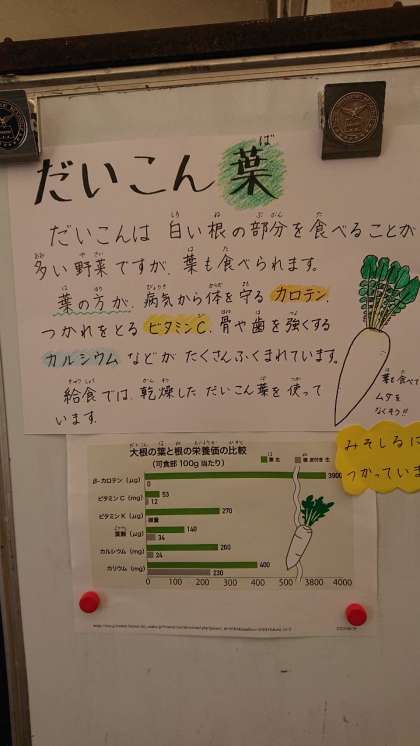 だいこん葉
だいこんは 白い根の部分を食べることが
多い野菜ですが、葉も食べられます。
葉の方が、病気から体を守る カロテン、
つかれをとる ビタミンC、骨や歯を強くする
カルシウム などが たくさんふくまれています。
給食では、乾燥した だいこん葉を使って
います。
葉も食べて
ムダを
なくそう!!
みそしるに
つかっていま
大根の葉と根の栄養価の比較
(可食部 100g 当たり)
葉 生
根 皮付き 生
β-カロテン (μg) 3900 0
ビタミン C (mg) 53 12
ビタミン K (μg) 270 微量
葉酸 (μg) 140 34
カルシウム (mg) 260 24
カリウム (mg) 400 230
0 100 200 300 400 500 3000 4000